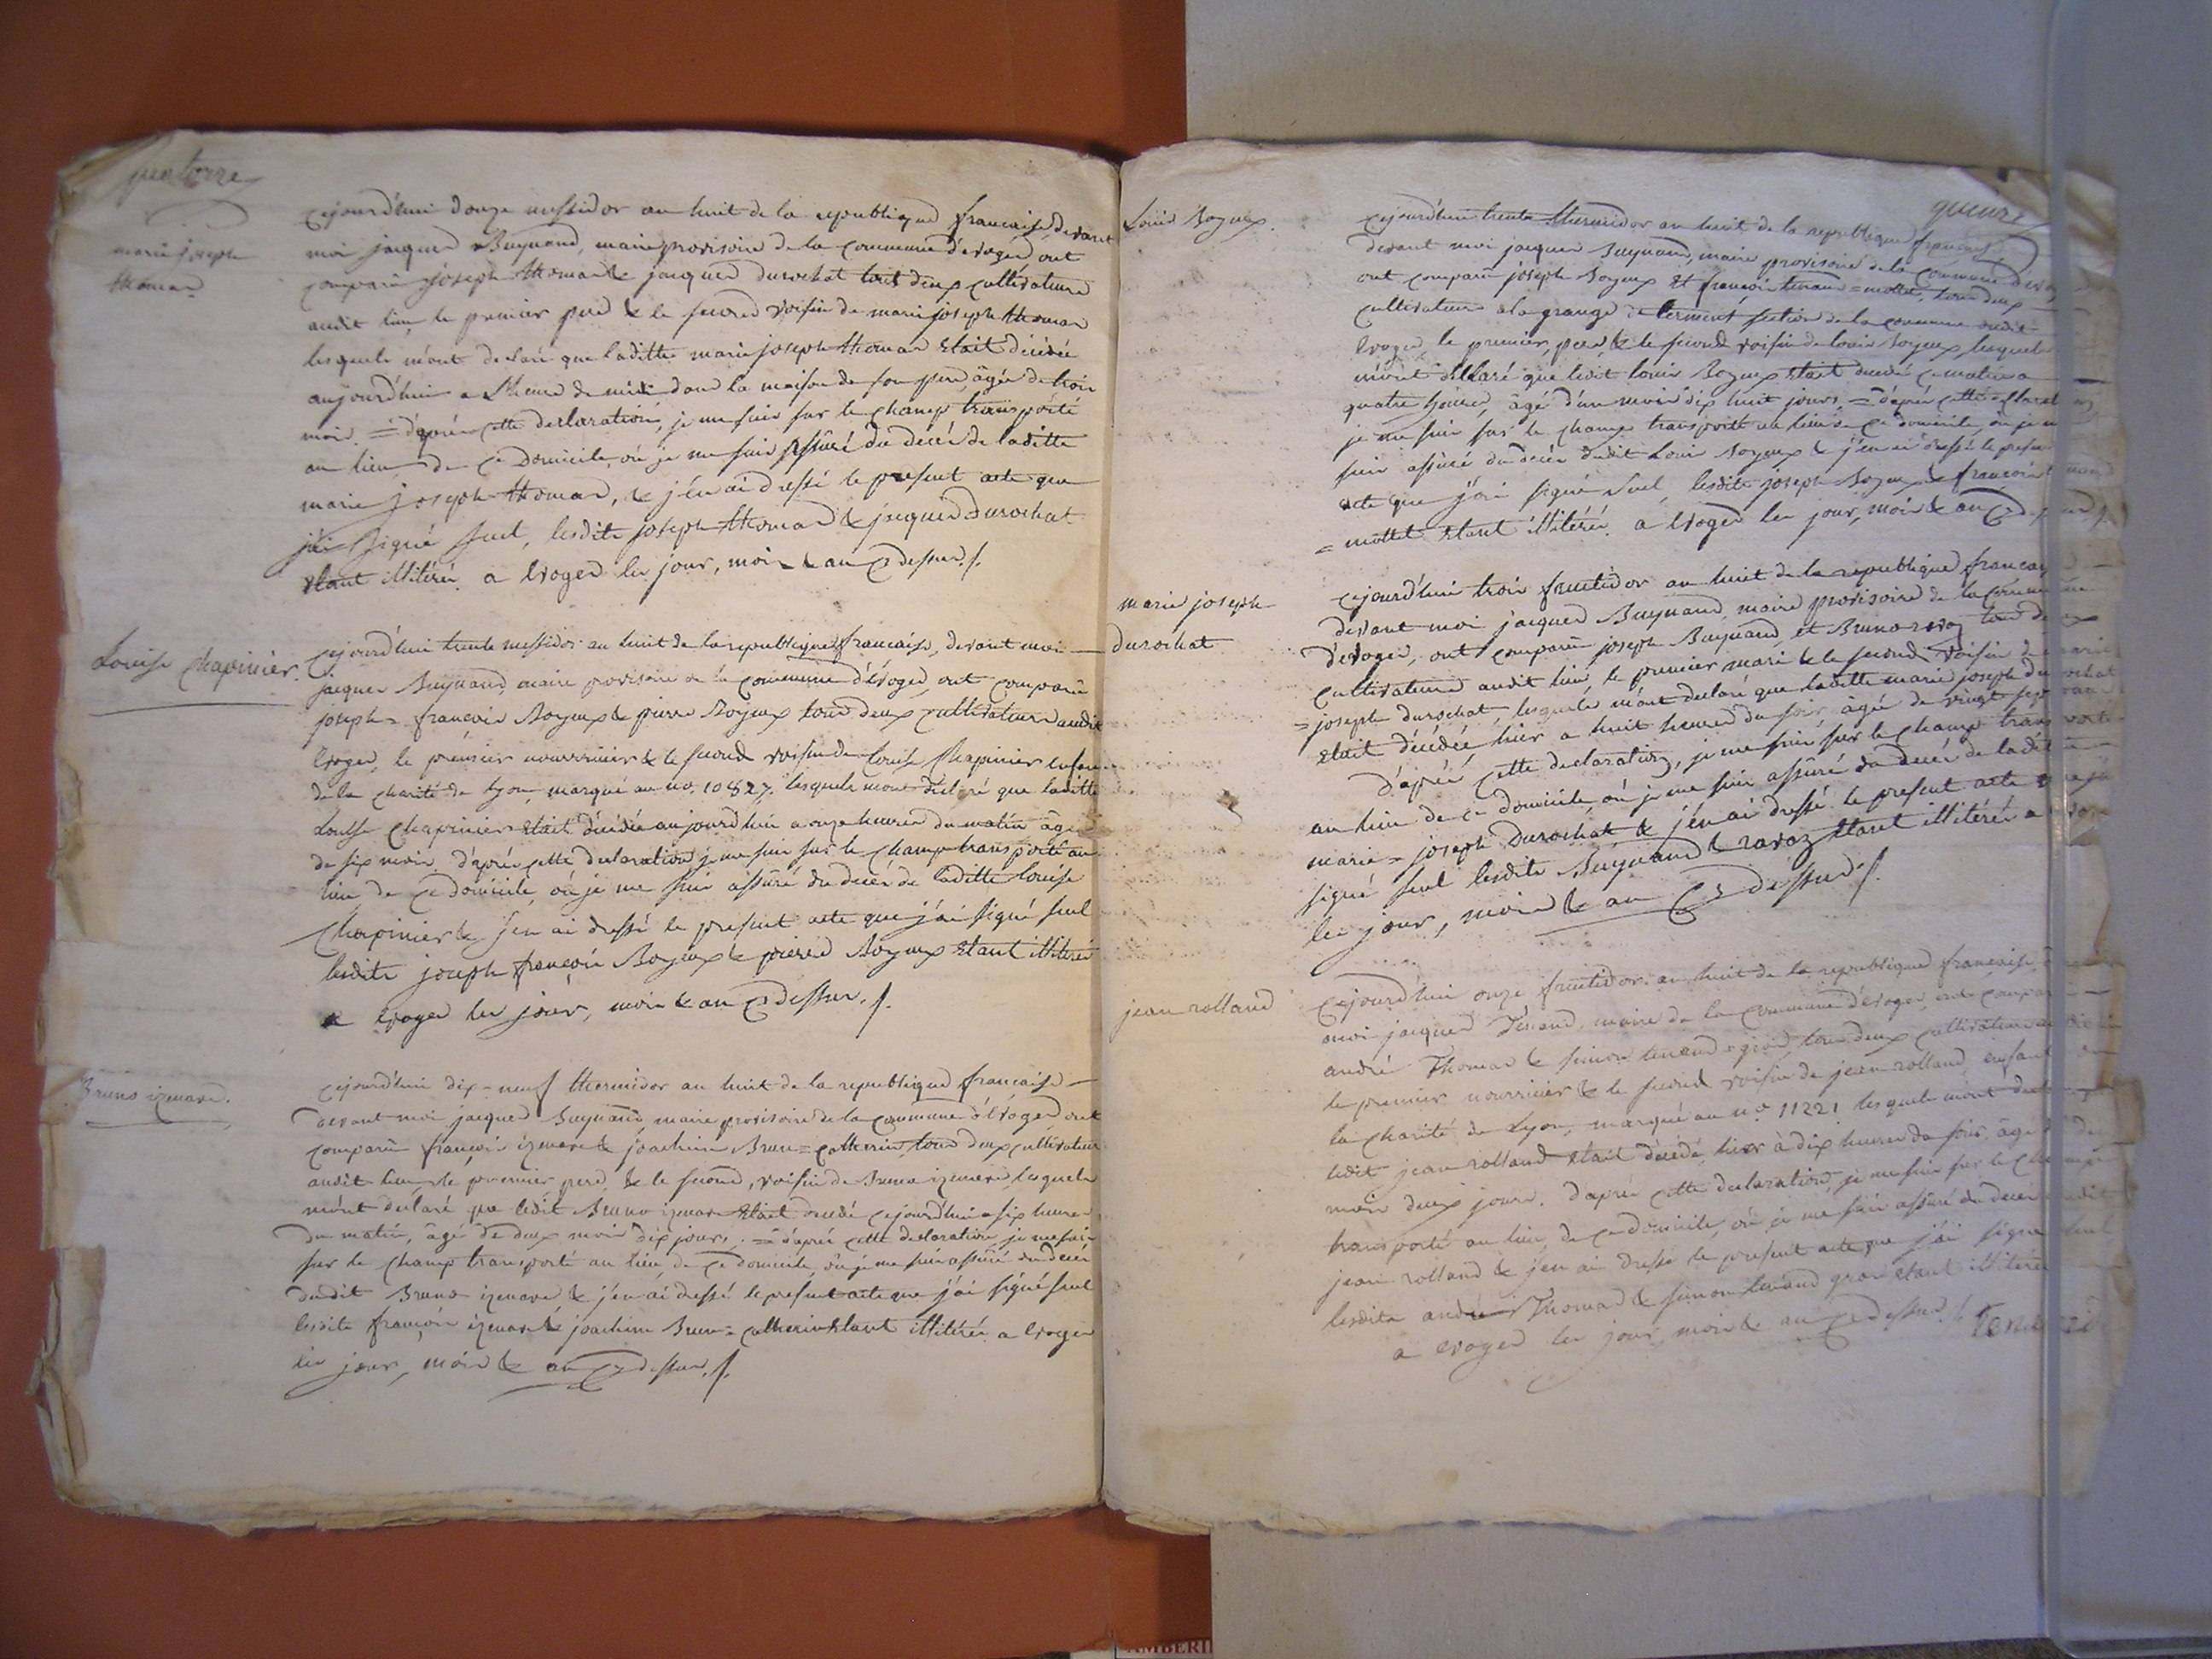 quatorze
marie joseph
thomas
cejourd'hui douze messidor an huit de la republique francaise devant
moi jacques Buynand, maire provisoire de la commune d'evoges ont
comparu joseph thomas & jacques durochat tous deux cultivateurs
audit lieu, le premier pere & le second voisin de marie joseph thomas
lesquels m'ont declaré que laditte marie joseph thomas etait décédée
aujourd'hui a l'heure de midi dans la maison de son pere, âgée de trois
mois. = d'aprés cette declaration, je me suis sur le champ transporté
au lieu de ce Domicile, où je me suis assûré du decés de laditte
marie joseph thomas, & j'en ai dressé le present acte que
j'ai signé seul, lesdits joseph thomas & jacques durochat
etant illitérés. a Evoges les jour, mois & an cy dessus ./.
Louise Chapinier.
cejourd'hui trente messidor an huit de la republique francaise, devant moi
jacques Buynand, maire provisoire de la commune d'évoges, ont comparu
joseph = francois Boyeux & pierre Boyeux tous deux cultivateurs audit
Evoges, le premier nourricier & le second voisin de Louise Chapinier enfant
de la charité de Lyon, marqué au no. 10827. lesquels mont déclaré que laditte
Louise Chapinier etait décédée aujourd'hui a onze heures du matin âgée
de six mois, d'aprés cette declaration je me suis sur le champ transporté au
lieu de ce domicile, où je me suis assûré du decés de laditte Louise
Chapinier & j'en ai dressé le present acte que j'ai signé seul
lesdits joseph françois Boyeux & pierre Boyeux etant illitérés
a evoges les jour, mois & an cy dessus ./.
Bruno izenard.
cejourd'hui dix = neuf thermidor an huit de la republique francaise
devant moi jacques Buynand maire provisoire de la commune d'Evoges, ont
comparu françois izenard & joachim Brun = catherin, tous deux cultivateurs
audit lieu, le premier pere, & le second, voisin de Bruno izenard, lesquels
m'ont declaré que ledit Bruno izenard etait decedé cejourd'hui a six heures
du matin, âgé de deux mois dix jours. = d'aprés cette declaration je me suis
sur le champ transporté au lieu de ce domicile, où je me suis assûré du decés
dudit Bruno izenard & j'en ai dressé le present acte que j'ai signé seul
lesdits françois izenard & joachim Brun = catherin etant illitérés a Evoges
les jour, mois & an cy dessus ./.
quinze
Louis Boyeux.
cejourd'hui trente thermidor an huit de la republique francaise
devant moi jacques Buynand, maire provisoire de la commune d'evo
ont comparu joseph Boyeux et françois tenand = mottet, tous deux
cultivateurs a la grange de section de la commune dudit
Evoges, le premier, pere, & le second voisin de louis Boyeux, lesquels
m'ont déclaré que ledit louis Boyeux etait decedé ce matin a
quatre heures, âgé d'un mois dix huit jours. = d'aprés cette declarat
je me suis sur le champ transporté au lieu de ce domicile, où je m
suis assûré du decés dudit Louis Boyeux & j'en ai dressé le present
acte que j'ai signé seul, lesdits joseph Boyeux & francois t
= mottet etant illitérés. a Evoges les jour, mois & an cy dessus ./.
marie joseph
durochat
cejourd'hui trois fructidor an huit de la republique francaise
devant moi jacques Buynand, maire provisoire de la commune
d'evoges, ont comparu joseph Buynand et Bruno ravoz tous deux
cultivateurs audit lieu, le premier mari & le second voisin de marie
= joseph durochat, lesquels m'ont declaré que laditte marie joseph durochat
etait décédée hier a huit heures du soir âgée de vingt sept ans
d'aprés cette declaration, je me suis sur le champ transporté
au lieu de ce domicile, où je me suis assûré du decés de laditte
marie = joseph Durochat & j'en ai dressé le present acte que j'ai
signé seul lesdits Buynand & ravoz etant illitérés a Evoges
les jour, mois & an cy dessus ./.
jean rolland
cejourd'hui onze fructidor an huit de la republique française,
moi jacques Tenand, maire de la commune d'evoges, ont comparu
andré Thomas & simon tenand = gros, tous deux cultivateurs
le premier nourricier & le second voisin de jean rolland, enfant
la charité de Lyon, marqué au no. 11221 lesquels mont declaré
ledit jean rolland etait décédé, hier à dix heures du soir, âgé de
mois deux jours. d'aprés cette declaration, je me suis sur le champ
transporté au lieu de ce domicile, où je me suis assûré du decés dudit
jean rolland & j'en ai dressé le present acte que j'ai signé seul
lesdits andré Thomas & simon tenand gros etant illitérés
a evoges les jour, mois & an cy dessus ./. Tenand